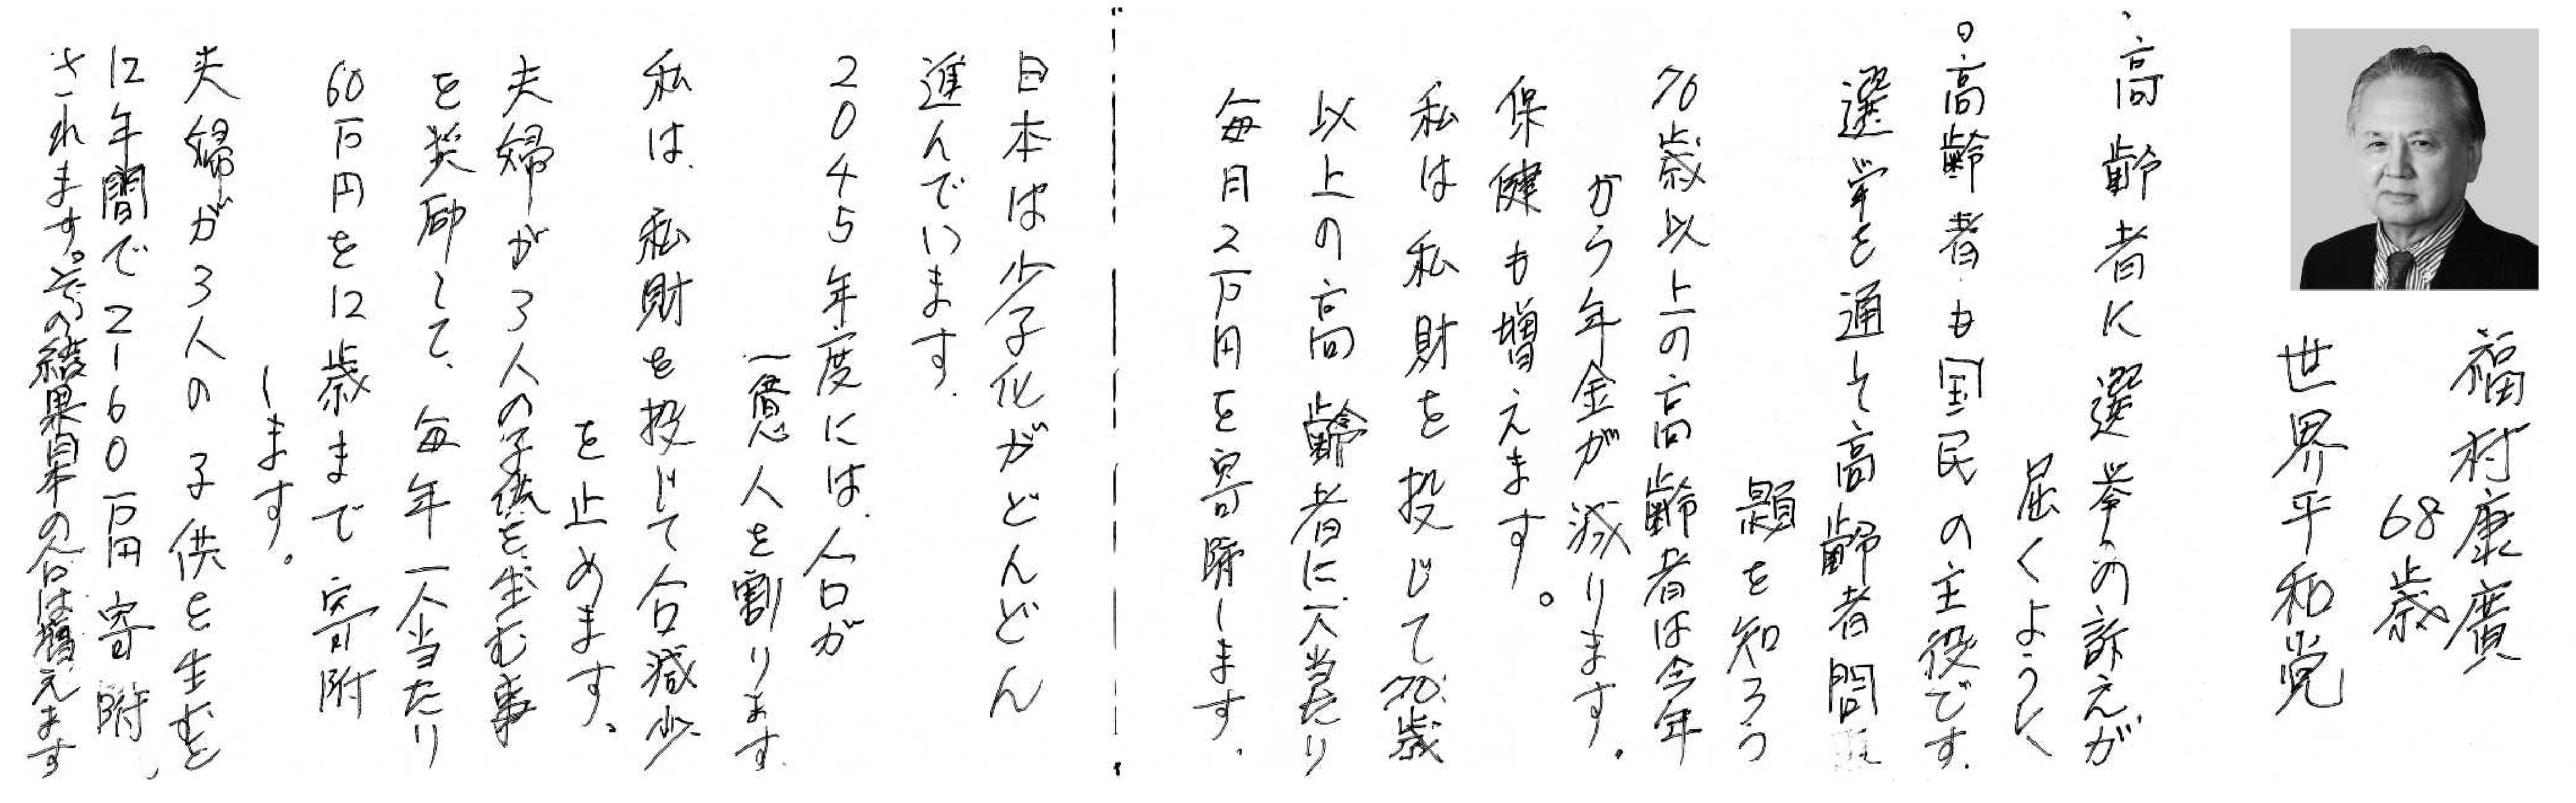 福村康廣
68歳
世界平和党
・高齢者に選挙の訴えが
届くように
○高齢者も国民の主役です.
選挙を通して高齢者問題
を知ろう
70歳以上の高齢者は今年
から年金が減ります。
保健も増えます。
私は私財を投じて70歳
以上の高齢者に一人当たり
毎月2万円を寄附します.
日本は少子化がどんどん
進んでいます.
2045年度には、人口が
一億人を割ります.
私は、私財を投じて人口減少
を止めます。
夫婦が3人の子供を生む事
を奨励して、毎年一人当たり
60万円を12歳まで寄附
します。
夫婦が3人の子供を生むと
12年間で2160万円寄附
されます。その結果日本の人口は増えます